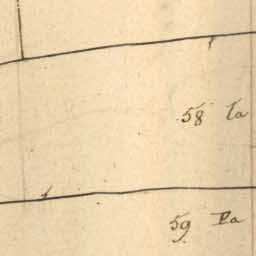 58 la
59 Pa